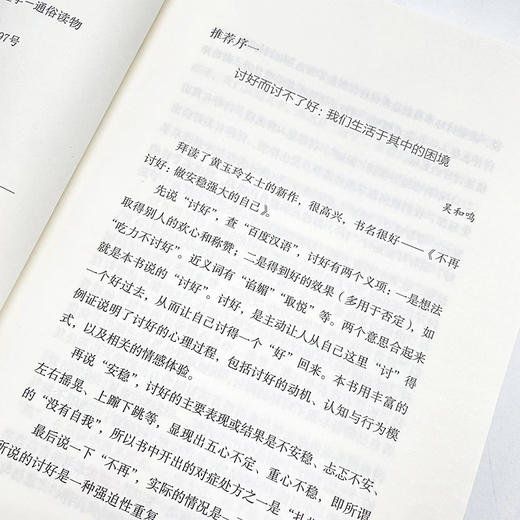 学－通俗读物
97号
推荐序一
讨好而讨不了好：我们生活于其中的困境
吴和鸣
拜读了黄玉玲女士的新作，很高兴，书名很好——《不再
讨好：做安稳强大的自己》。
先说“讨好”，查“百度汉语”，讨好有两个义项：一是想法
取得别人的欢心和称赞；二是得到好的效果（多用于否定），如
“吃力不讨好”。近义词有“谄媚”“取悦”等。两个意思合起来
就是本书说的“讨好”。讨好，是主动让人从自己这里“讨”得
一个好过去，从而让自己讨得一个“好”回来。本书用丰富的
例证说明了讨好的心理过程，包括讨好的动机、认知与行为模
式，以及相关的情感体验。
再说“安稳”，讨好的主要表现或结果是不安稳、忐忑不安、
左右摇晃、上蹿下跳等，显现出五心不定、重心不稳，即所谓
的“没有自我”，所以书中开出的对症处方之一是“扎
最后说一下“不再”，实际的情况是一
所说的讨好是一种强迫性重复